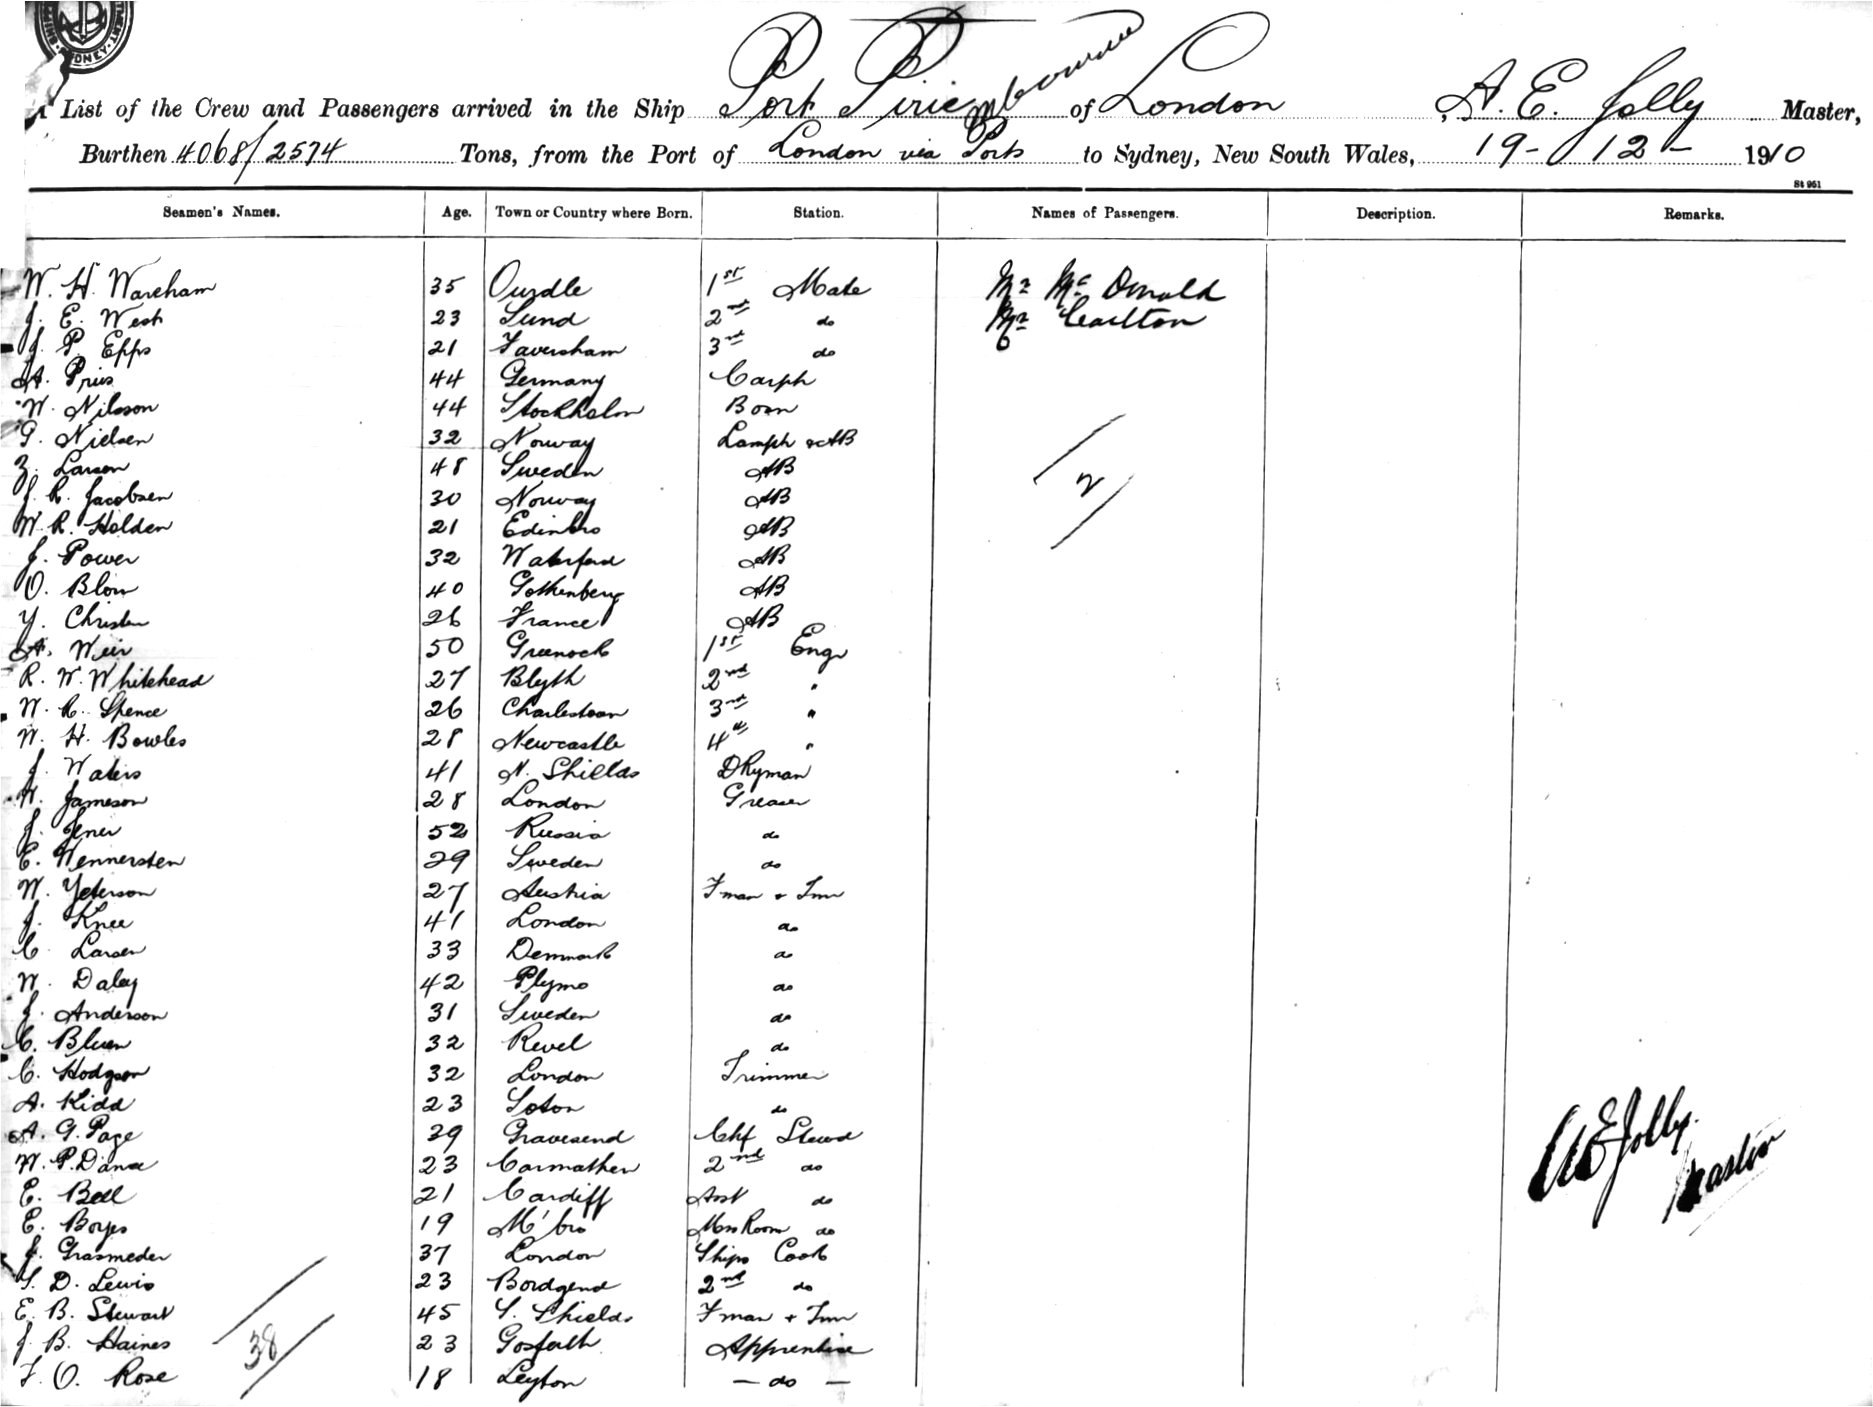 SYDNEY
A List of the Crew and Passengers arrived in the Ship Port Pirie of London, A. E. Jolly Master,
Burthen 4068/2574 Tons, from the Port of London via Ports to Sydney, New South Wales, 19-12-1910
St 961
Seamen's Names. Age. Town or Country where Born. Station. Names of Passengers. Description. Remarks.
W. H. Wareham 35 Oundle 1st Mate Mr McDonald
J. E. West 23 Lund 2nd do Mr Carlton
J. P. Epps 21 Faversham 3rd do
A. Prius 44 Germany Carptr
W. Nilsson 44 Stockholm Bosn
G. Nielsen 32 Norway Lamptr & AB
Z. Larson 48 Sweden AB
J. R. Jacobsen 30 Norway AB
W. R. Holden 21 Edinbro AB
J. Power 32 Waterford AB
O. Blom 40 Gothenberg AB
Y. Christen 26 France AB
A. Weir 50 Greenock 1st Engr
R. W. Whitehead 27 Blyth 2nd "
W. R. Spence 26 Charlestown 3rd "
W. H. Bowles 28 Newcastle 4th "
J. Waters 41 N. Shields DKyman
W. Jameson 28 London Greaser
J. Jener 52 Russia do
E. Wennersten 29 Sweden do
W. Peterson 27 Austria Fman & Tmr
J. Knee 41 London do
C. Larsen 33 Denmark do
W. Daley 42 Plymo do
J. Anderson 31 Sweden do
C. Bluen 32 Revel do
C. Hodgson 32 London Trimmer
A. Kidd 23 Soton do
A. G. Page 39 Gravesend Chf Stewd
W. P. Dance 23 Carmathen 2nd do
E. Bell 21 Cardiff Asst do
E. Boyes 19 M'bro MessRoom do
J. Grasmeder 37 London Ships Cook
S. D. Lewis 23 Bordgend 2nd do
E. B. Stewart 45 S. Shields Fman & Tmr
J. B. Haines 23 Gosforth Apprentice
F. O. Rose 18 Leyton - do -
2
38
A E Jolly.
Master